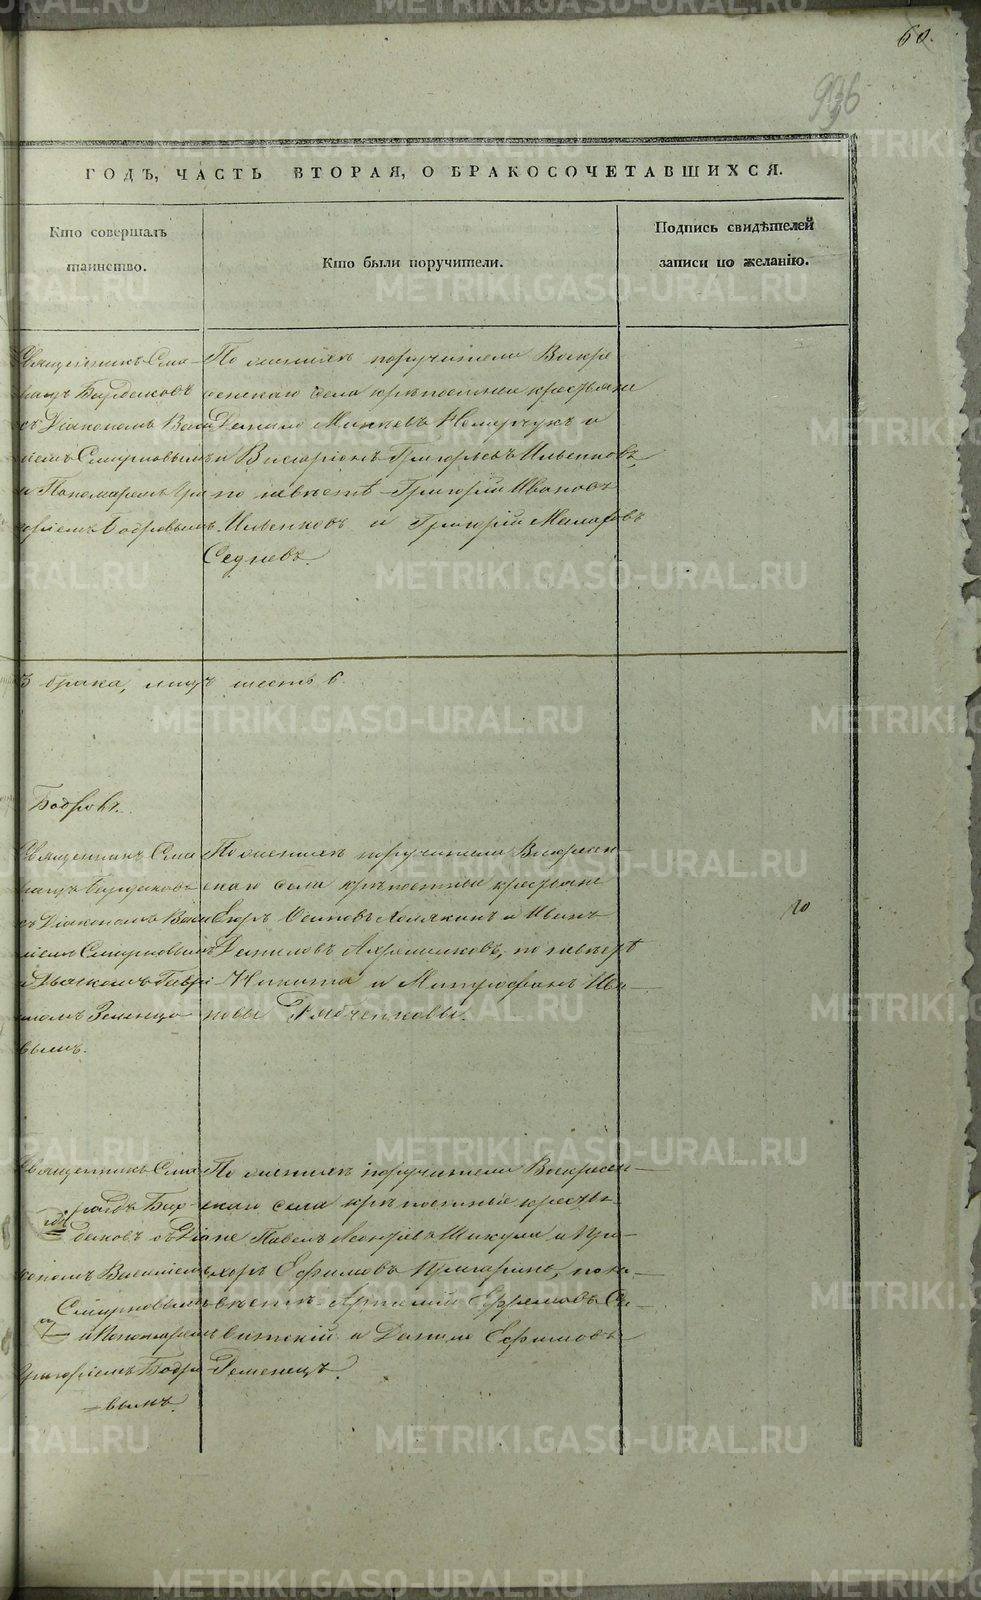 60.
936
ГОДЪ, ЧАСТЬ ВТОРАЯ, О БРАКОСОЧЕТАВШИХСЯ.
Кто совершалъ
таинство.
Кто были поручители.
Подпись свидѣтелей
записи по желанію.
Священникъ Сма-
съ Діакономъ Васи
ліемъ Смирновымъ
и Пономаремъ Гри
горіемъ Бодровымъ.
По женихѣ поручители Воскре
сенскаго села крѣпостные крестьяне
Данило
и Виссаріонъ Григорьевъ Ильенковъ,
по невѣстѣ Григорій Ивановъ
Ильенковъ и Григорій
Седневъ.
3 брака, лицъ шесть 6.
Бодровъ.
Священникъ Сма
съ Діакономъ Васи
ліемъ Смирновымъ
и Дьячкомъ Гаврі
иломъ Зеленцо
вымъ.
По женихѣ поручители Воскресен
скаго села крѣпостные крестьяне
Егоръ Осиповъ и Иванъ
Даниловъ по невѣстѣ
Никита и Митрофанъ Ива-
новы Рябченковы.
10
Священникъ Сма
рагдъ Бар-
деновъ съ Діа
кономъ Василіемъ
Смирновымъ
и Пономаремъ
Григоріемъ Бодро
-вымъ.
По женихѣ поручители Воскресен-
скаго села крѣпостные крестья-
не Павелъ Леонтьевъ Шикула и При-
хоръ Ефимовъ по не-
вѣстѣ Артемій Ефремовъ Са-
витскій и Данило Ефимовъ
Геменецъ.